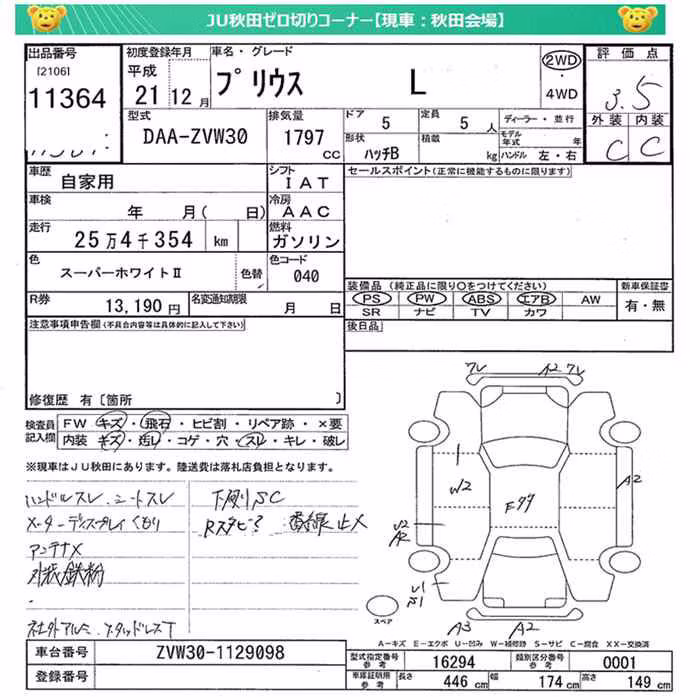 JU秋田ゼロ切りコーナー【現車:秋田会場】
出品番号
[2106]
11364
初度登録年月
平成
21 12月
車名・グレード
プリウス L
2WD
・
4WD
評価点
3.5
外装 内装
C C
型式
DAA-ZVW30
排気量
1797
CC
ドア
5
定員
5 人
形状
ハッチB
積載
kg
ディーラー・並行
モデル年式 年
ハンドル 左・右
車歴
自家用
シフト
IAT
車検
年 月( 日)
冷房
AAC
走行
25万4千354 km
燃料
ガソリン
色
スーパーホワイトⅡ
色替
色コード
040
R券
13,190円
名変通知期限
月 日
セールスポイント(正常に機能するものに限ります)
装備品(純正品に限り○をつけてください)
PS PW ABS エアB AW
SR ナビ TV カワ
新車保証書
有・無
後日品
注意事項申告欄(不具合内容等は具体的に記入して下さい)
修復歴 有〔箇所 〕
検査員記入欄
FW キズ・飛石・ヒビ割・リペア跡・×要
内装 キズ・汚レ・コゲ・穴・スレ・キレ・破レ
※現車はJU秋田にあります。陸送費は落札店負担となります。
ハンドルスレ シートスレ
メーターディスプレイくもり
アンテナX
外装鉄粉
社外アルミ.スタッドレスT
下廻りSC
Rスタビ?
ワレ A2 ワレ
W2
A2
F77
U2
A2
U1
S1
A3 A2
スペア
A-キズ E-エクボ U-凹み W-補修跡 S-サビ C-腐食 XX-交換済
車台番号
ZVW30-1129098
登録番号
型式指定番号 参考
16294
類別区分番号 参考
0001
車庫証明用 参考
長さ 446 cm
幅 174 cm
高さ 149 cm